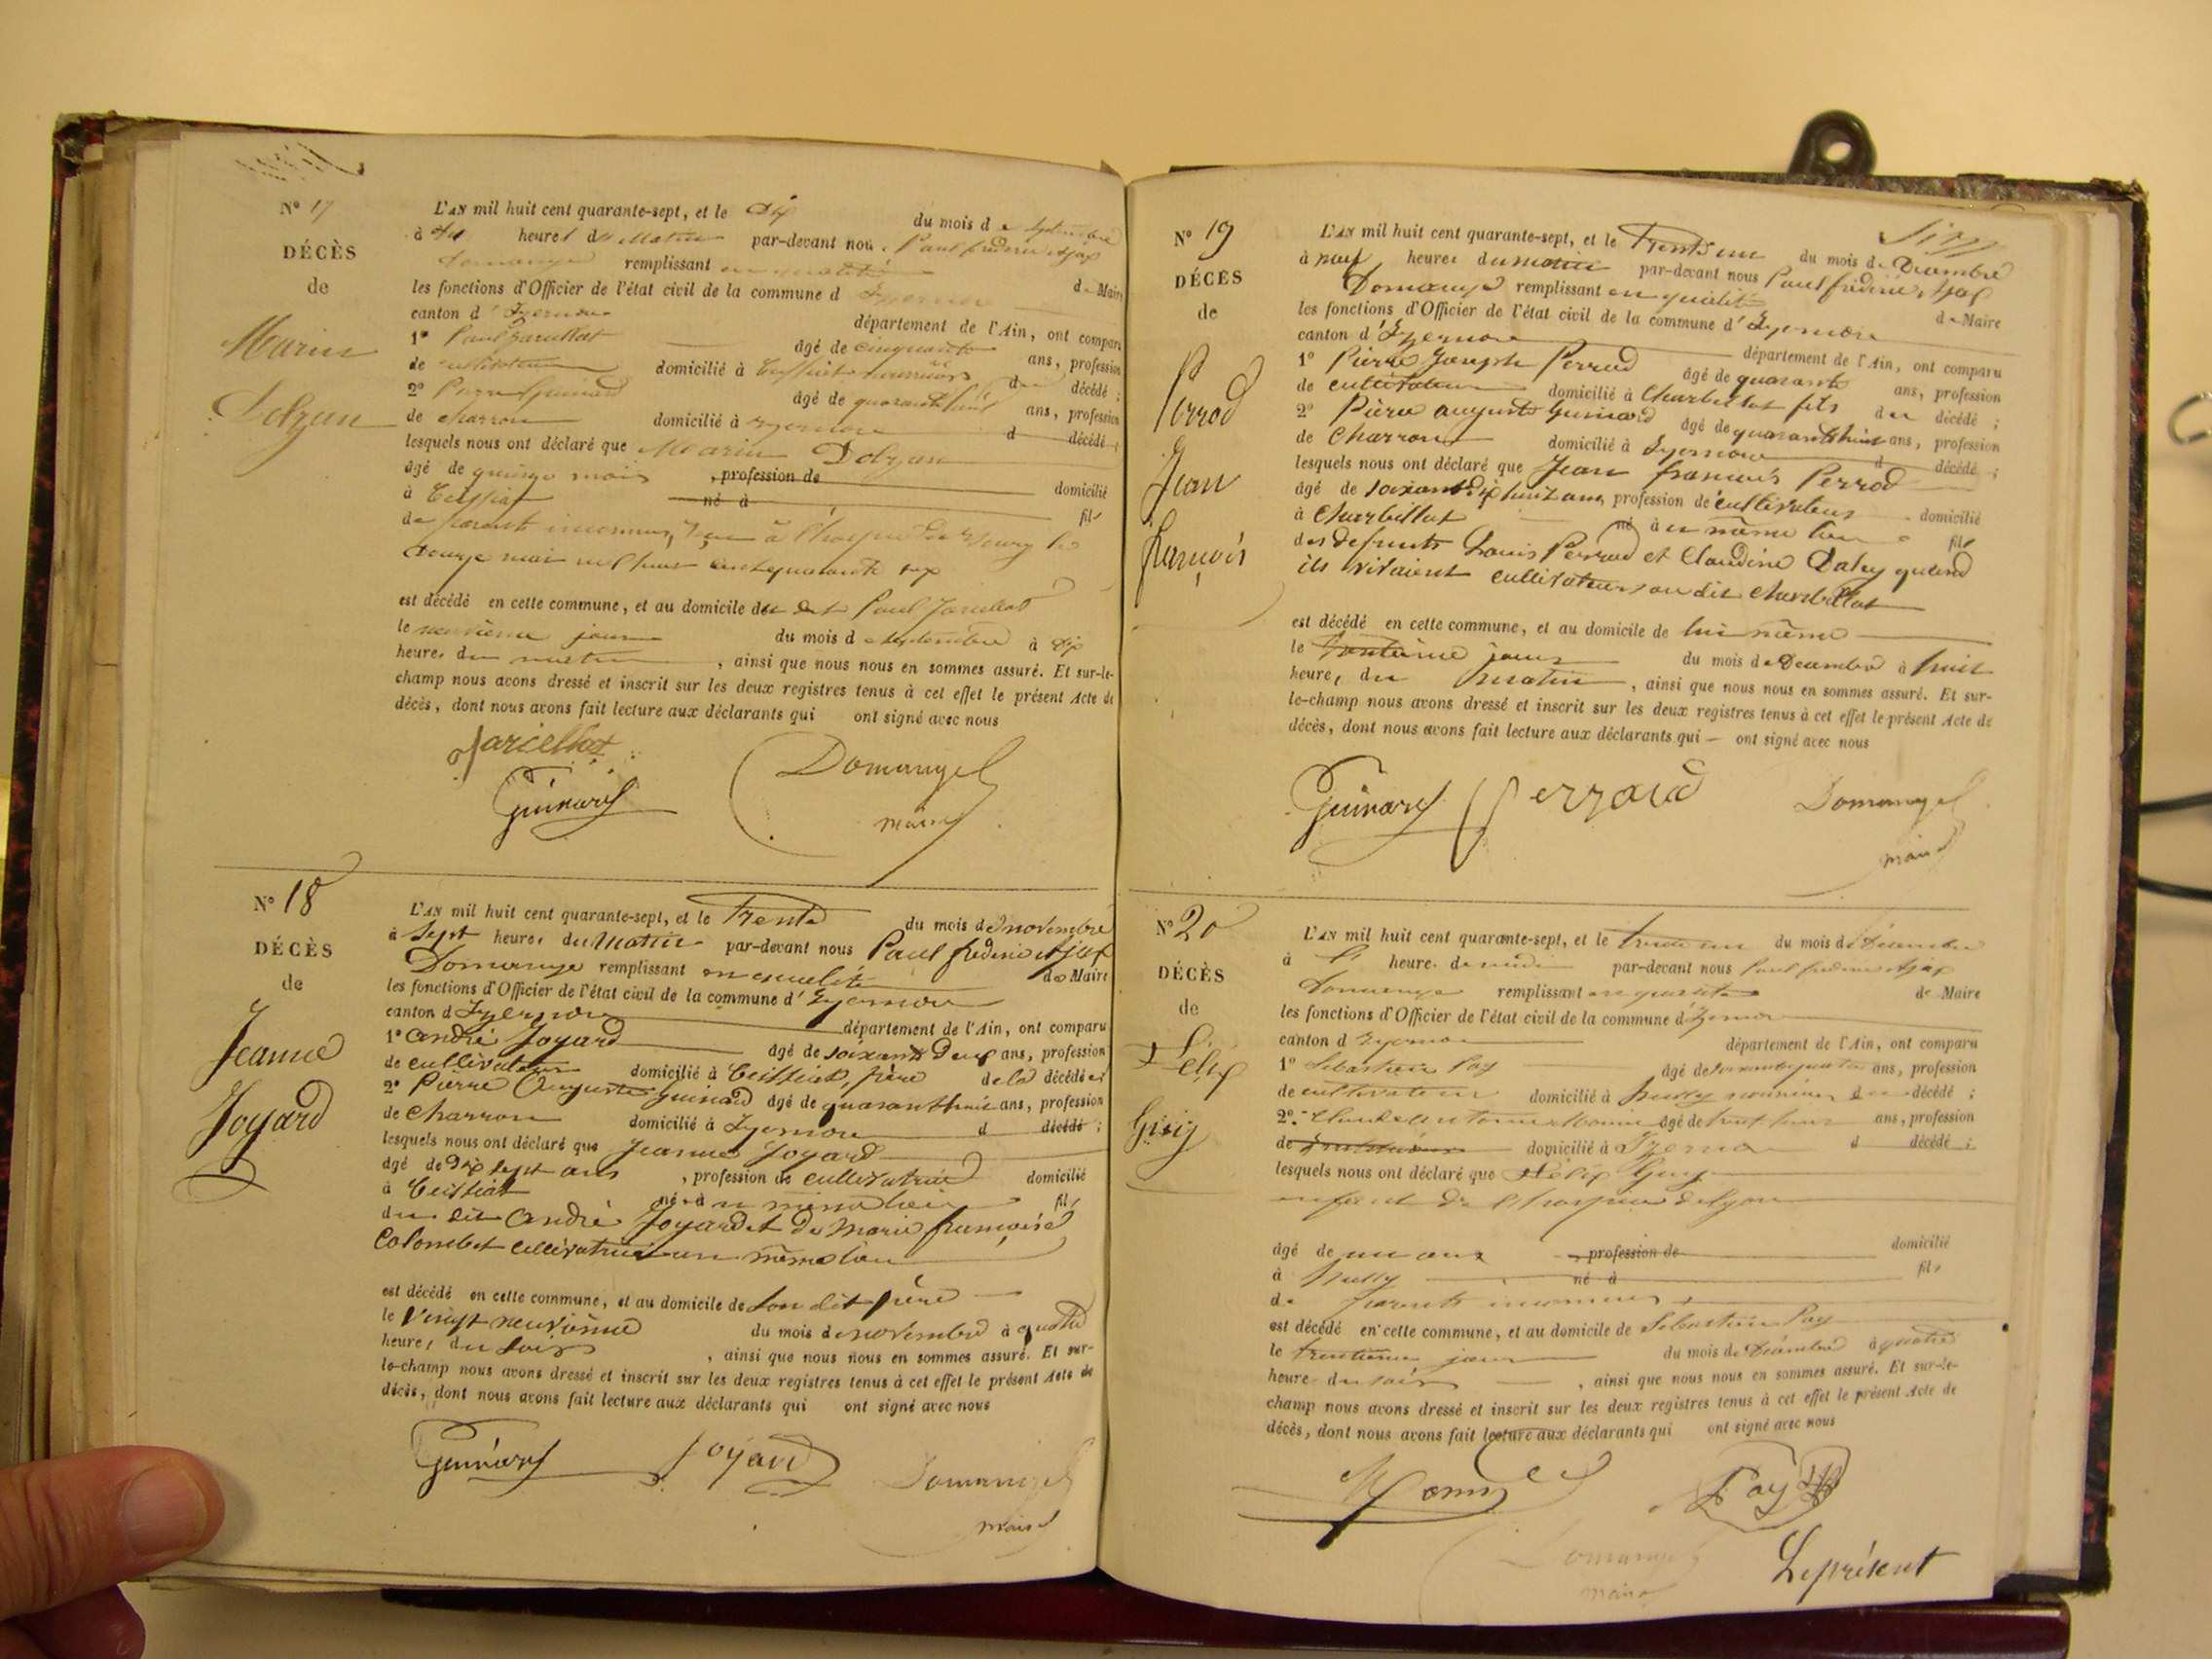 N° 17
DÉCÈS
de
Marin
Dolzan
L'AN mil huit cent quarante-sept, et le dix du mois de Septembre
à dix heures du Matin par-devant nous Paul frédéric Ajax
Domange remplissant en qualité de Maire
les fonctions d'Officier de l'état civil de la commune d'Izernore
canton d'Izernore département de l'Ain, ont comparu
1° Paul Jarcellat âgé de cinquante ans, profession
de cultivateur domicilié à Ceissiat nourricier du décédé ;
2° Pierre Guinard âgé de quarante huit ans, profession
de charron domicilié à Izernore d décédé ;
lesquels nous ont déclaré que Marin Dolzan
âgé de quinze mois , profession de domicilié
à Ceissiat né à fils
de parents inconnus, à l'hospice de le
mai mil huit cent quarante six
est décédé en cette commune, et au domicile du dit Paul Jarcellat
le neuvième jour du mois de Septembre à dix
heures du matin , ainsi que nous nous en sommes assuré. Et sur-le-
champ nous avons dressé et inscrit sur les deux registres tenus à cet effet le présent Acte de
décès, dont nous avons fait lecture aux déclarants qui ont signé avec nous
Jarcellat
Guinard
Domange
maire
N° 18
DÉCÈS
de
Jeanne
Joyard
L'AN mil huit cent quarante-sept, et le Trente du mois de novembre
à Sept heures du Matin par-devant nous Paul frédéric Ajax
Domange remplissant en qualité de Maire
les fonctions d'Officier de l'état civil de la commune d'Izernore
canton d'Izernore département de l'Ain, ont comparu
1° André Joyard âgé de soixante Deux ans, profession
de cultivateur domicilié à Ceissiat, père de la décédée ;
2° Pierre Auguste Guinard âgé de quarante huit ans, profession
de Charron domicilié à Izernore d décédé ;
lesquels nous ont déclaré que Jeanne Joyard
âgé de Dix sept ans , profession de cultivatrice domicilié
à Ceissiat née au même lieu fils
du dit André Joyard et de Marie françoise
Colombet cultivatrice au même lieu
est décédé en cette commune, et au domicile de Son dit père
le Vingt neuvième du mois de novembre à quatre
heures du Soir , ainsi que nous nous en sommes assuré. Et sur-
le-champ nous avons dressé et inscrit sur les deux registres tenus à cet effet le présent Acte de
décès, dont nous avons fait lecture aux déclarants qui ont signé avec nous
Guinard Joyard Domange
maire
N° 19
DÉCÈS
de
Perrod
Jean
françois
L'AN mil huit cent quarante-sept, et le Trente un du mois de Décembre
à neuf heures du matin par-devant nous Paul frédéric Ajax
Domange remplissant en qualité de Maire
les fonctions d'Officier de l'état civil de la commune d'Izernore
canton d'Izernore département de l'Ain, ont comparu
1° Pierre Joseph Perrod âgé de quarante ans, profession
de cultivateur domicilié à Charbillat fils du décédé ;
2° Pierre auguste Guinard âgé de quarante huit ans, profession
de Charron domicilié à Izernore d décédé ;
lesquels nous ont déclaré que Jean françois Perrod
âgé de soixante dix huit ans, profession de cultivateur domicilié
à Charbillat né à au même lieu fils
des defunts Louis Perrod et Claudine Dalry quand
ils vivaient cultivateurs au dit Charbillat
est décédé en cette commune, et au domicile de lui même
le Trentième jour du mois de Décembre à huit
heures du Matin , ainsi que nous nous en sommes assuré. Et sur-
le-champ nous avons dressé et inscrit sur les deux registres tenus à cet effet le présent Acte de
décès, dont nous avons fait lecture aux déclarants qui ont signé avec nous
Guinard Perraud Domange
maire
N° 20
DÉCÈS
de
Félix
Guy
L'AN mil huit cent quarante-sept, et le trente un du mois de Décembre
à heure de midi par-devant nous Paul frédéric Ajax
Domange remplissant en qualité de Maire
les fonctions d'Officier de l'état civil de la commune d'Izernore
canton d Izernore département de l'Ain, ont comparu
1° Sébastien Pay âgé de soixante quatre ans, profession
de cultivateur domicilié à nourricier du décédé ;
2° Claude Antoine âgé de ans, profession
de domicilié à Izernore d décédé ;
lesquels nous ont déclaré que Félix Guy
enfant de l'hospice de Lyon
âgé de un ans profession de domicilié
à né à fils
de parents inconnus
est décédé en cette commune, et au domicile de Sébastien Pay
le trentième jour du mois de Décembre à quatre
heures du soir , ainsi que nous nous en sommes assuré. Et sur-le-
champ nous avons dressé et inscrit sur les deux registres tenus à cet effet le présent Acte de
décès, dont nous avons fait lecture aux déclarants qui ont signé avec nous
Pay
Domange
maire
Le présent